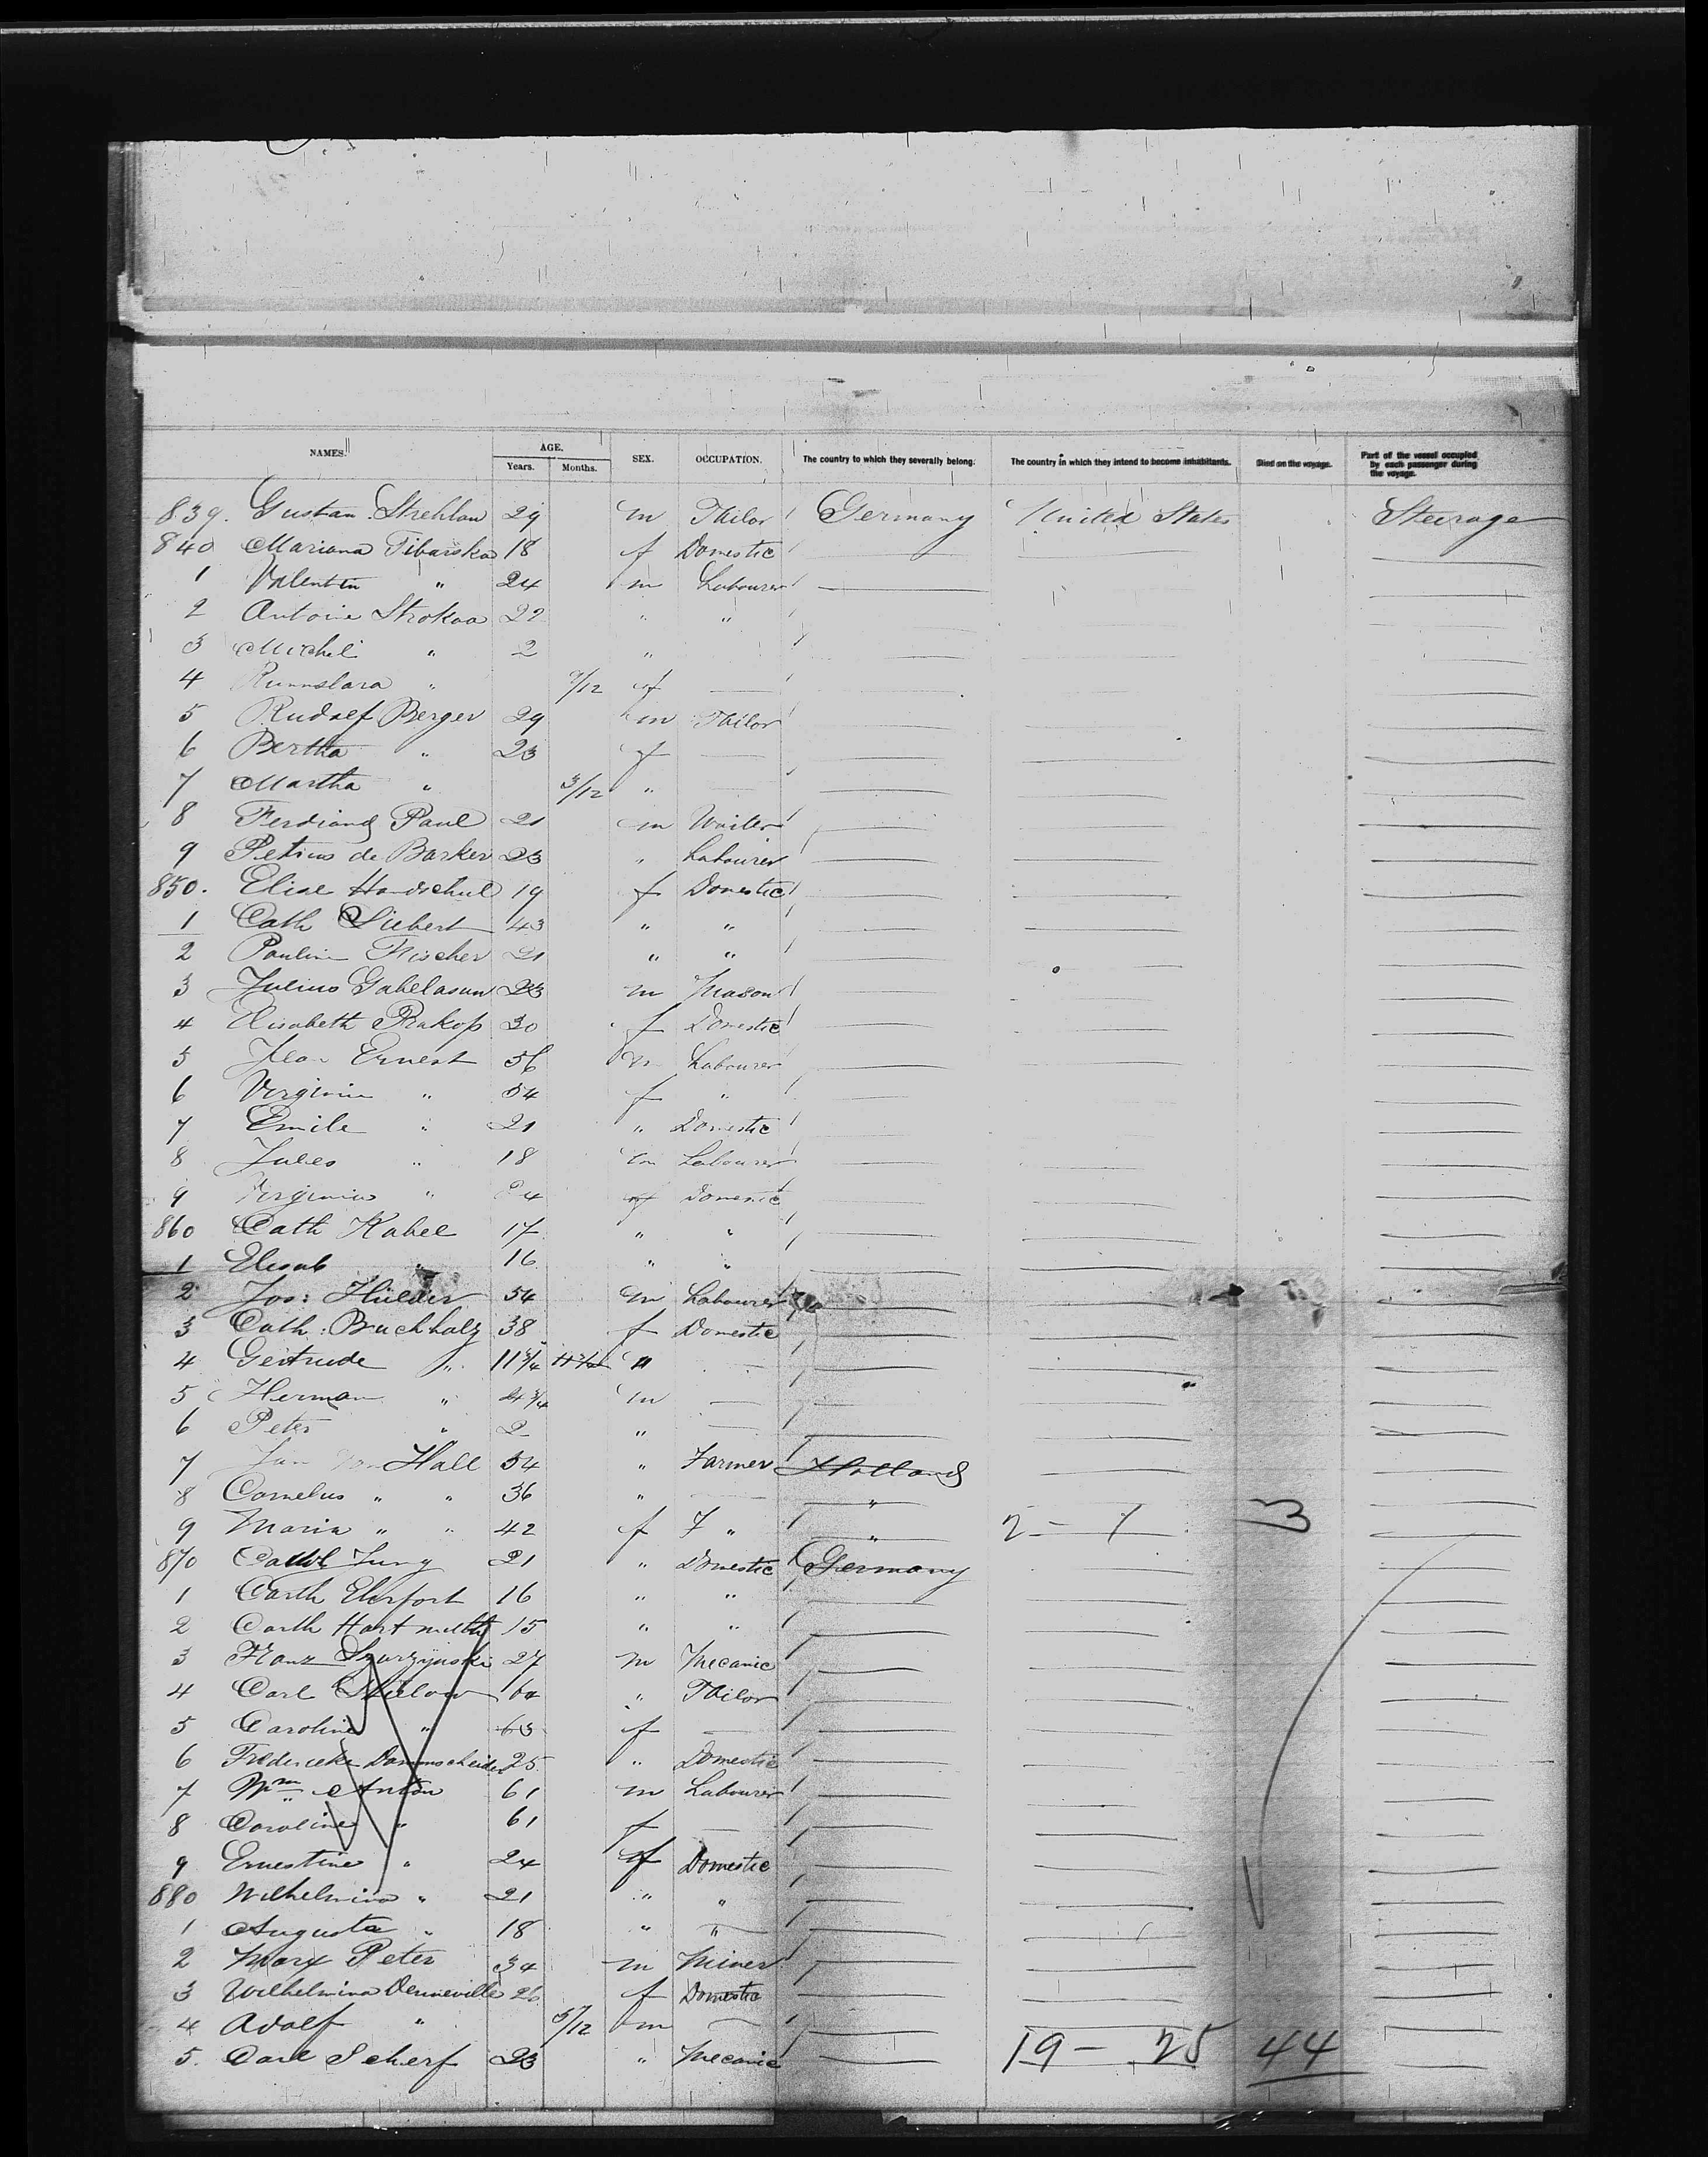 NAMES. AGE. SEX. OCCUPATION. The country to which they severally belong. The country in which they intend to become inhabitants. Died on the voyage. Part of the vessel occupied by each passenger during the voyage.
Years. Months.
839. Gustav Strehlow 29 m Tailor Germany United States Steerage
840 Mariana Tibarska 18 f Domestic
1 Valentin " 24 m Labourer
2 Antoine Strokoa 22 " "
3 Michel " 2 "
4 " 9/12 f
5 Rudolf Berger 29 m Tailor
6 Bertha " 23 f
7 Martha " 3/12 "
8 Ferdiand Paul 21 m Waiter
9 Petrus de Barker 23 " Labourer
850. Elise Handschul 19 f Domestic
1 Cath Siebert 43 " "
2 Pauline Fischer 21 " "
3 Julius 23 m Mason
4 Elisabeth Prakop 30 f Domestic
5 Jean Ernest 56 m Labourer
6 Virginie " 54 f "
7 Emile " 21 " Domestic
8 Jules " 18 m Labourer
9 Virginie " 24 f Domestic
860 Cath Kabel 17 " "
1 Elisab " 16 " "
2 Jos: 54 m Labourer
3 Cath: Buchholz 38 f Domestic
4 Gertrude " 11 3/4 "
5 Herman " 4 3/4 m
6 Peter " 2 "
7 Jan von Hall 54 " Farmer Holland
8 Cornelus " " 36 " "
9 Maria " " 42 f F " " 2 - 1 3
870 Jung 21 " Domestic Germany
1 Carth 16 " "
2 Carth Hartmuth 15 " "
3 Franz 27 m Mecanic
4 Carl 60 " Tailor
5 Caroline " 63 f
6 25 " Domestic
7 Wm Anton 61 m Labourer
8 Caroline " 61 f
9 Ernestine " 24 f Domestic
880 Wilhelmina " 21 " "
1 Augusta " 18 " "
2 Marx Peter 34 m Miner
3 Wilhelmina Denneville 26 f Domestic
4 Adolf " 5/12 m
5. Carl Scherf 23 " Mecanic 19 - 25 44